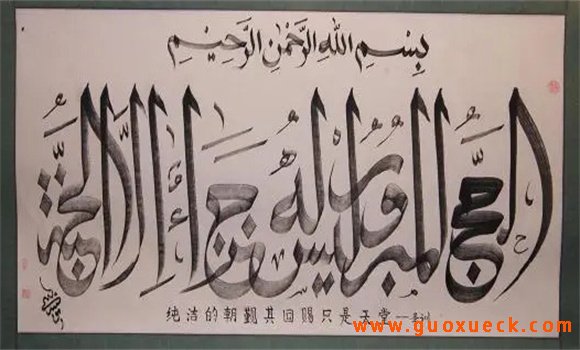 بِسْمِ اللهِ الرَّحْمٰنِ الرَّحِيْمِ
الحجّ المبرور ليس له جزاء إلّا الجنّة
纯洁的朝觐其回赐只是天堂——圣训
www.guoxueck.com